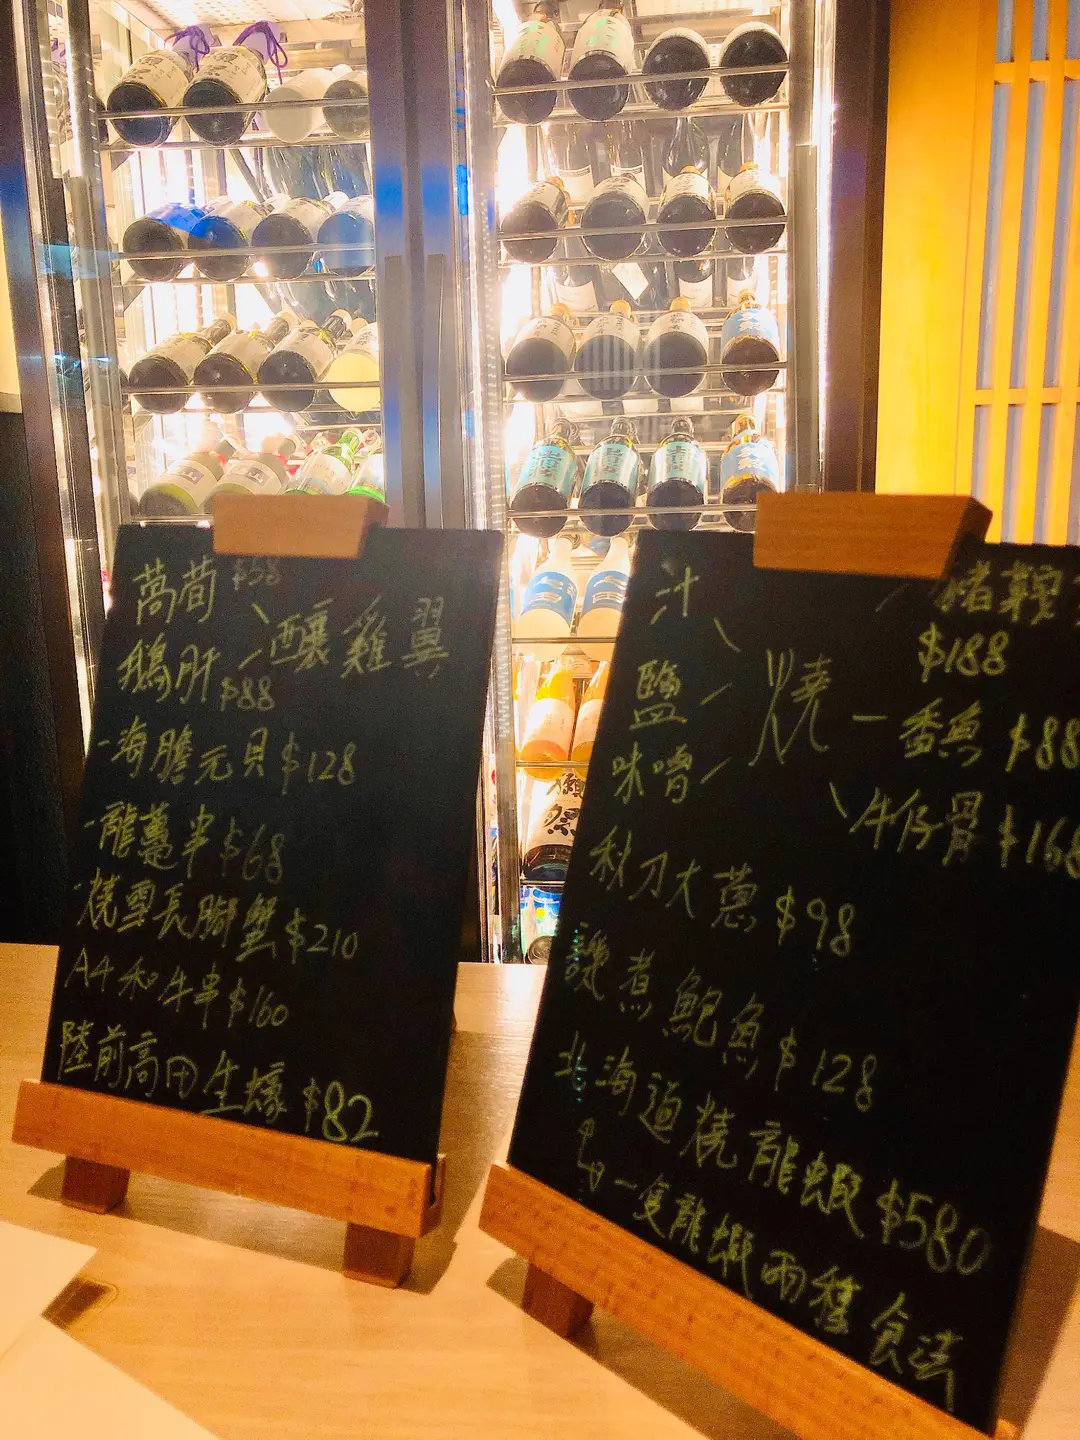 萵荀 $58
釀雞翼
鵝肝 $88
海膽元貝 $128
龍躉串 $68
燒雪長腳蟹 $210
A4和牛串 $160
陸前高田生蠔 $82
汁
鹽
味噌
燒
$188
番魚 $88
牛仔骨 $168
秋刀大蔥 $98
煮鮑魚 $128
北海道燒龍蝦 $580
一隻龍蝦兩種食法
獺祭